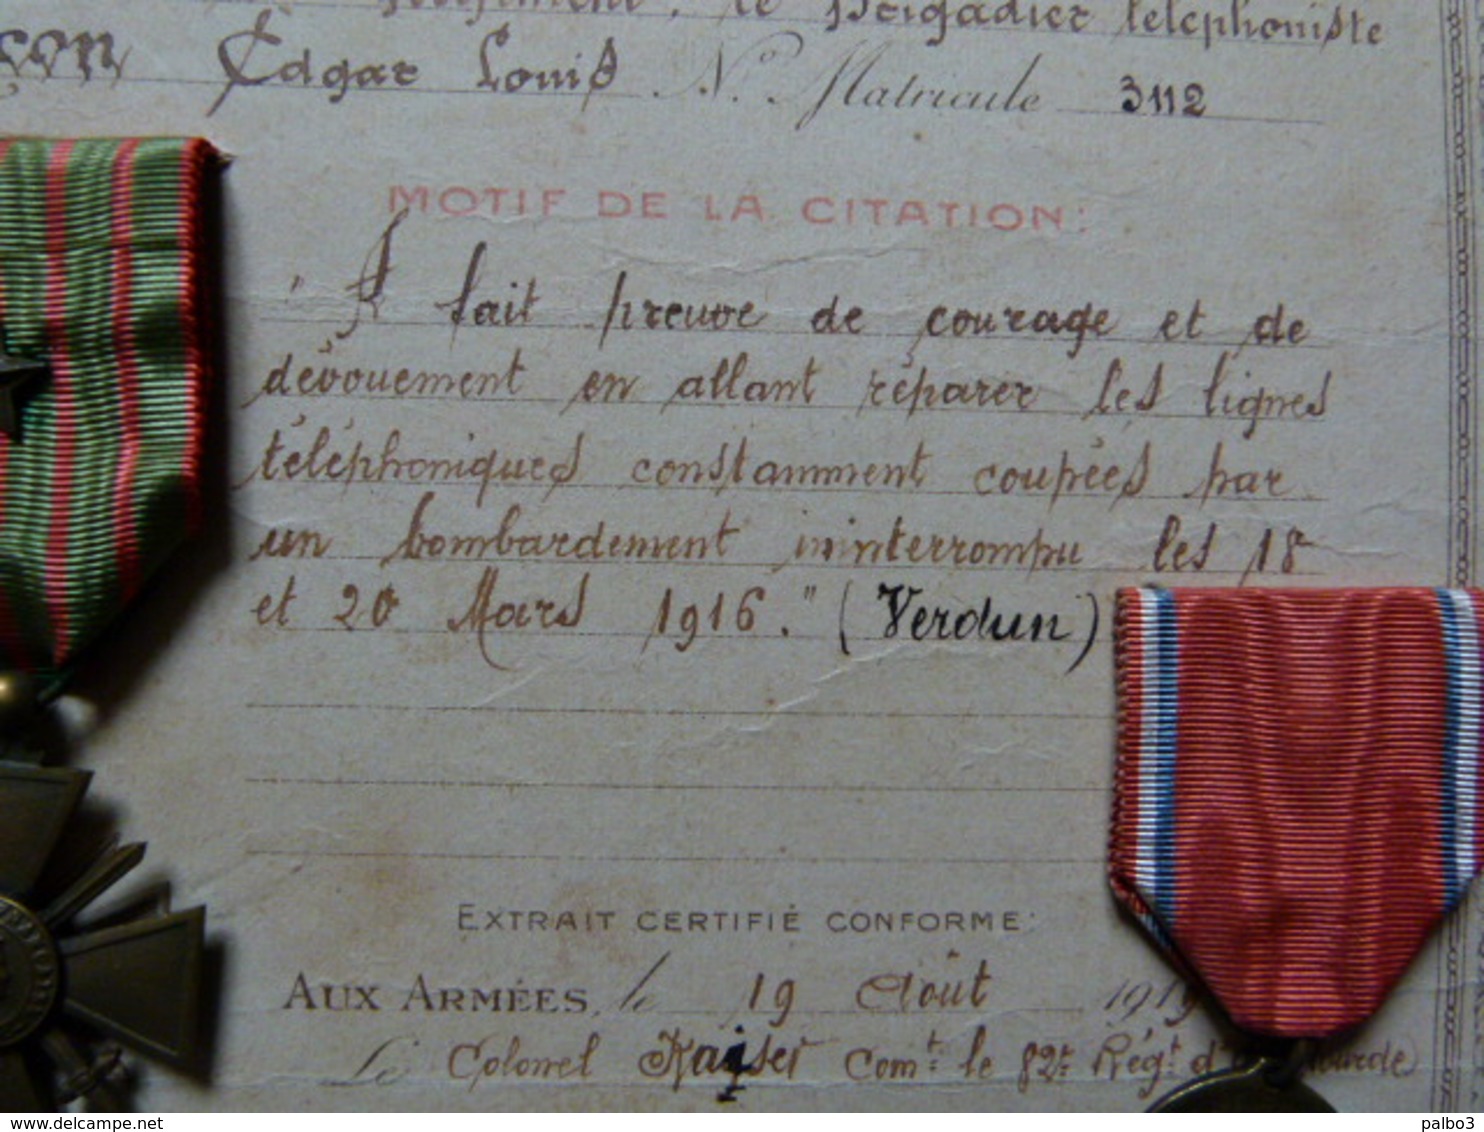 le Brigadier téléphoniste
Edgar Louis N° Matricule 3112
MOTIF DE LA CITATION:
"A fait preuve de courage et de
dévouement en allant réparer les lignes
téléphoniques constamment coupées par
un bombardement ininterrompu les 18
et 20 Mars 1916." (Verdun)
EXTRAIT CERTIFIÉ CONFORME:
AUX ARMÉES, le 19 Août 1919
Le Colonel Kayser Comt le 82e Régt d'
palbo3